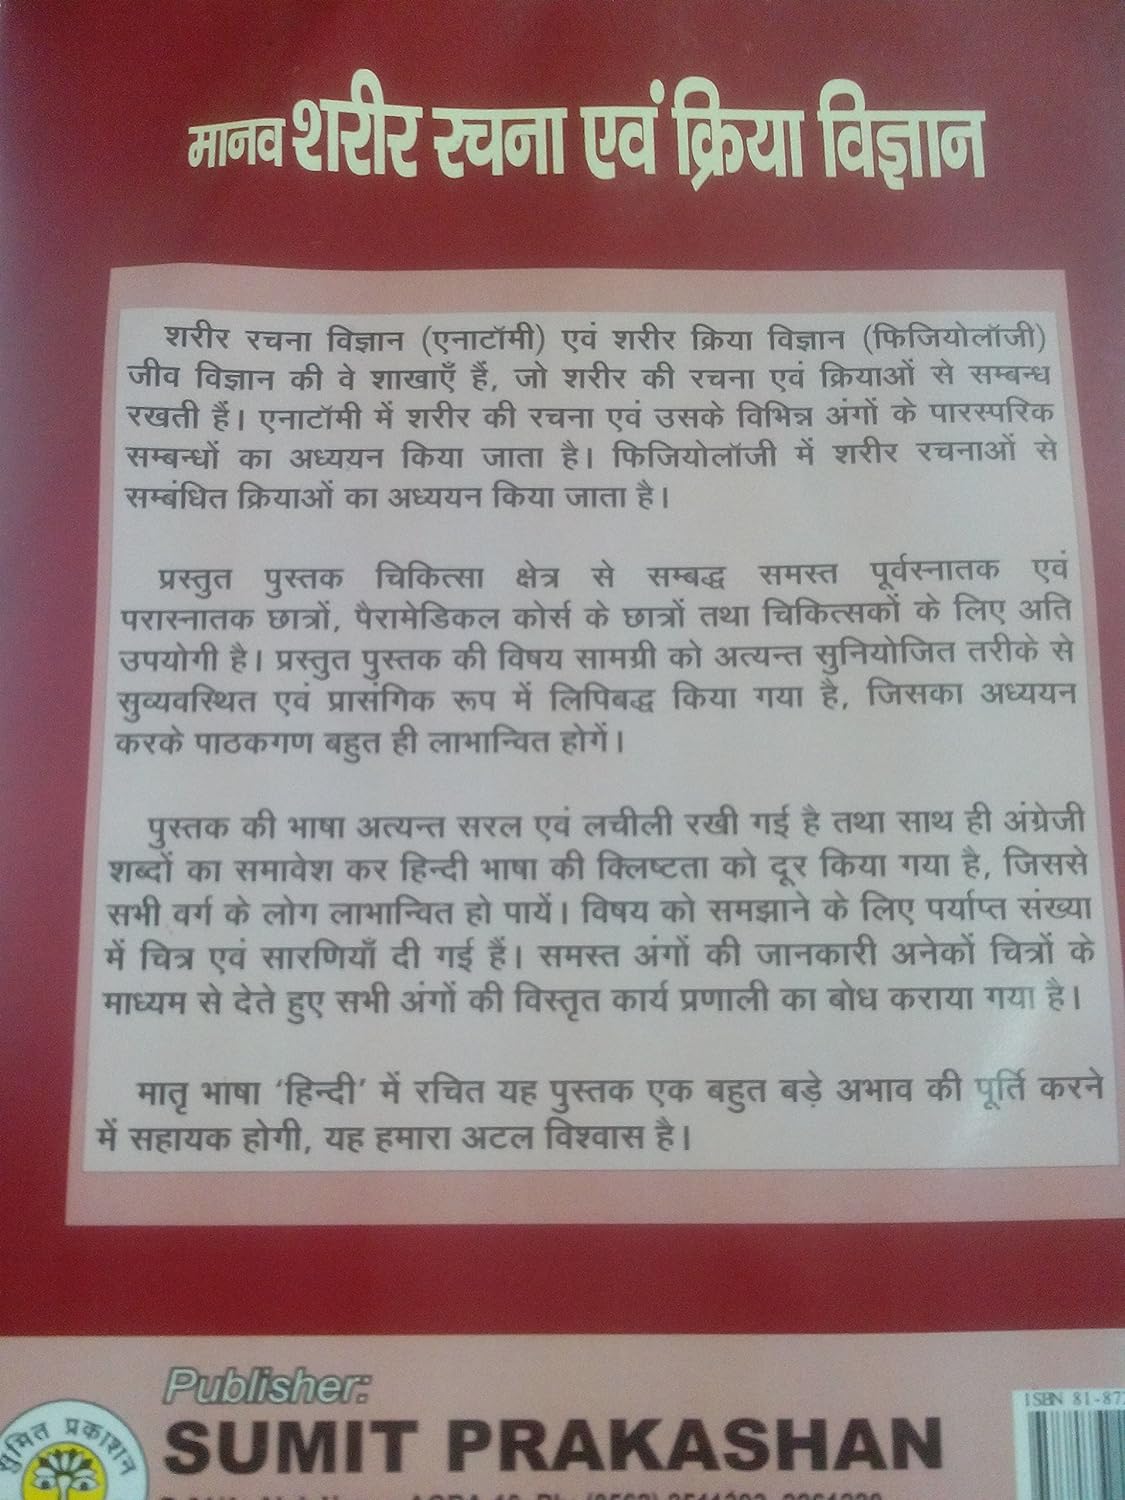 मानव शरीर रचना एवं क्रिया विज्ञान
शरीर रचना विज्ञान (एनाटॉमी) एवं शरीर क्रिया विज्ञान (फिजियोलॉजी)
जीव विज्ञान की वे शाखाएँ हैं, जो शरीर की रचना एवं क्रियाओं से सम्बन्ध
रखती हैं। एनाटॉमी में शरीर की रचना एवं उसके विभिन्न अंगों के पारस्परिक
सम्बन्धों का अध्ययन किया जाता है। फिजियोलॉजी में शरीर रचनाओं से
सम्बंधित क्रियाओं का अध्ययन किया जाता है।
प्रस्तुत पुस्तक चिकित्सा क्षेत्र से सम्बद्ध समस्त पूर्वस्नातक एवं
परास्नातक छात्रों, पैरामेडिकल कोर्स के छात्रों तथा चिकित्सकों के लिए अति
उपयोगी है। प्रस्तुत पुस्तक की विषय सामग्री को अत्यन्त सुनियोजित तरीके से
सुव्यवस्थित एवं प्रासंगिक रूप में लिपिबद्ध किया गया है, जिसका अध्ययन
करके पाठकगण बहुत ही लाभान्वित होगें।
पुस्तक की भाषा अत्यन्त सरल एवं लचीली रखी गई है तथा साथ ही अंग्रेजी
शब्दों का समावेश कर हिन्दी भाषा की क्लिष्टता को दूर किया गया है, जिससे
सभी वर्ग के लोग लाभान्वित हो पायें। विषय को समझाने के लिए पर्याप्त संख्या
में चित्र एवं सारणियाँ दी गई हैं। समस्त अंगों की जानकारी अनेकों चित्रों के
माध्यम से देते हुए सभी अंगों की विस्तृत कार्य प्रणाली का बोध कराया गया है।
मातृ भाषा ‘हिन्दी’ में रचित यह पुस्तक एक बहुत बड़े अभाव की पूर्ति करने
में सहायक होगी, यह हमारा अटल विश्वास है।
Publisher:
सुमित प्रकाशन
SUMIT PRAKASHAN
ISBN 81-87